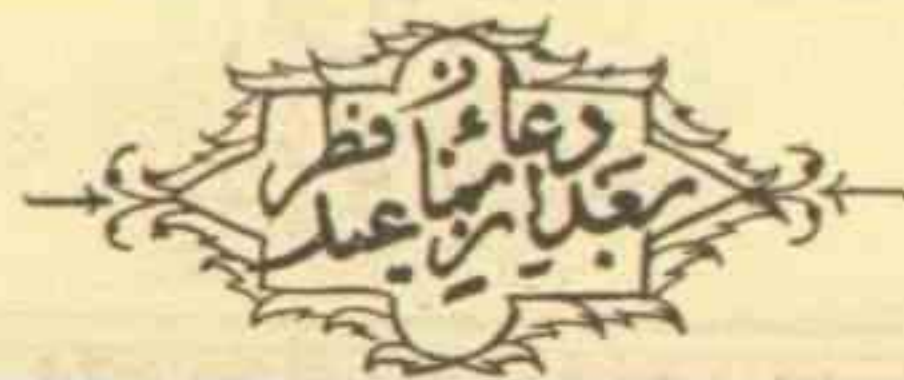 دعاء بعد از نماز عید فطر